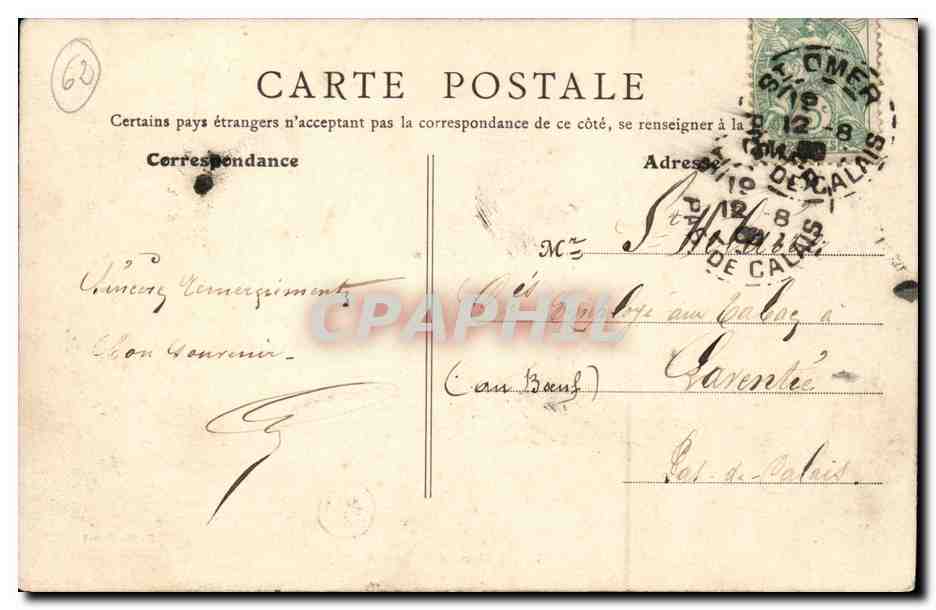 62
CARTE POSTALE
Certains pays étrangers n'acceptant pas la correspondance de ce côté, se renseigner à la
Correspondance
Adresse
ST OMER
19
12 -8
PAS DE CALAIS
19
12 -8
PAS DE CALAIS
Mr St
employé aux Tabacs à
Sincères remerciements
Bon souvenir
(au Bœuf)
Laventie
Pas-de-Calais
CPAPHIL